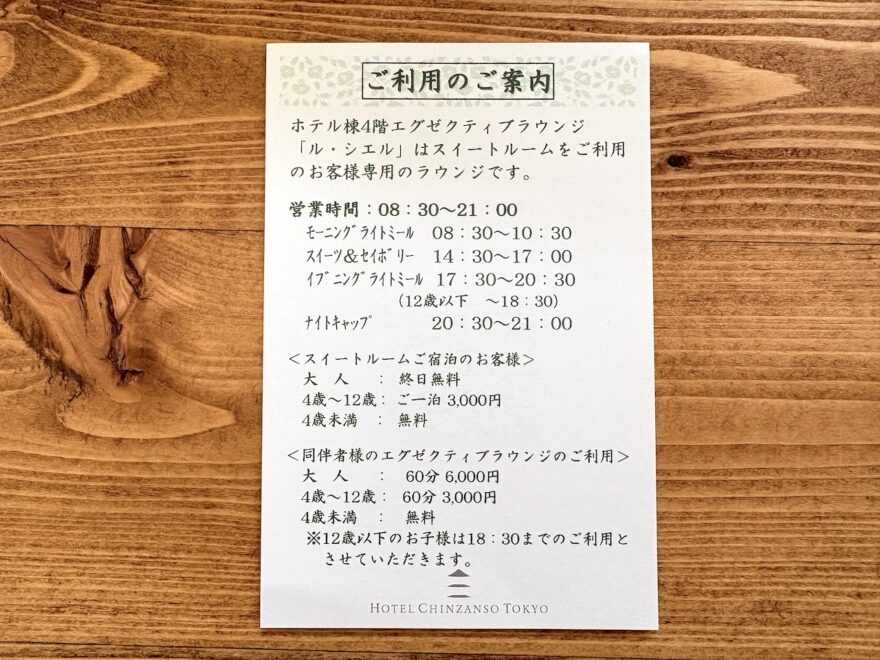 ご利用のご案内
ホテル棟4階エグゼクティブラウンジ
「ル・シエル」はスイートルームをご利用
のお客様専用のラウンジです。
営業時間：08：30～21：00
ﾓｰﾆﾝｸﾞﾗｲﾄﾐｰﾙ 08：30～10：30
ｽｲｰﾂ＆ｾｲﾎﾞﾘｰ 14：30～17：00
ｲﾌﾞﾆﾝｸﾞﾗｲﾄﾐｰﾙ 17：30～20：30
（12歳以下 ～18：30）
ﾅｲﾄｷｬｯﾌﾟ 20：30～21：00
＜スイートルームご宿泊のお客様＞
大 人 ： 終日無料
4歳～12歳： ご一泊 3,000円
4歳未満 ： 無料
＜同伴者様のエグゼクティブラウンジのご利用＞
大 人 ： 60分 6,000円
4歳～12歳： 60分 3,000円
4歳未満 ： 無料
※12歳以下のお子様は18：30までのご利用と
させていただきます。
HOTEL CHINZANSO TOKYO